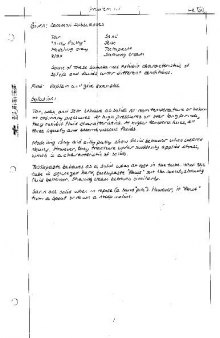 Problem 1.1
Given: Common Substances
Tar Sand
"Silly Putty" Jello
Modeling clay Toothpaste
Wax Shaving cream
Some of these substances exhibit characteristics of
solids and fluids under different conditions.
Find: Explain and give examples.
Solution:
Tar, Wax, and Jello behave as solids at room temperature or below
at ordinary pressures. At high pressures or over long periods,
they exhibit fluid characteristics. At higher temperatures, all
three liquefy and become viscous fluids.
Modeling clay and silly putty show fluid behavior when sheared
slowly. However, they fracture under suddenly applied stress,
which is a characteristic of solids.
Toothpaste behaves as a solid when at rest in the tube. When the
tube is squeezed hard, toothpaste "flows" out the spout, showing
fluid behavior. Shaving cream behaves similarly.
Sand acts solid when in repose (a sand "pile"). However, it "flows"
from a spout or down a steep incline.